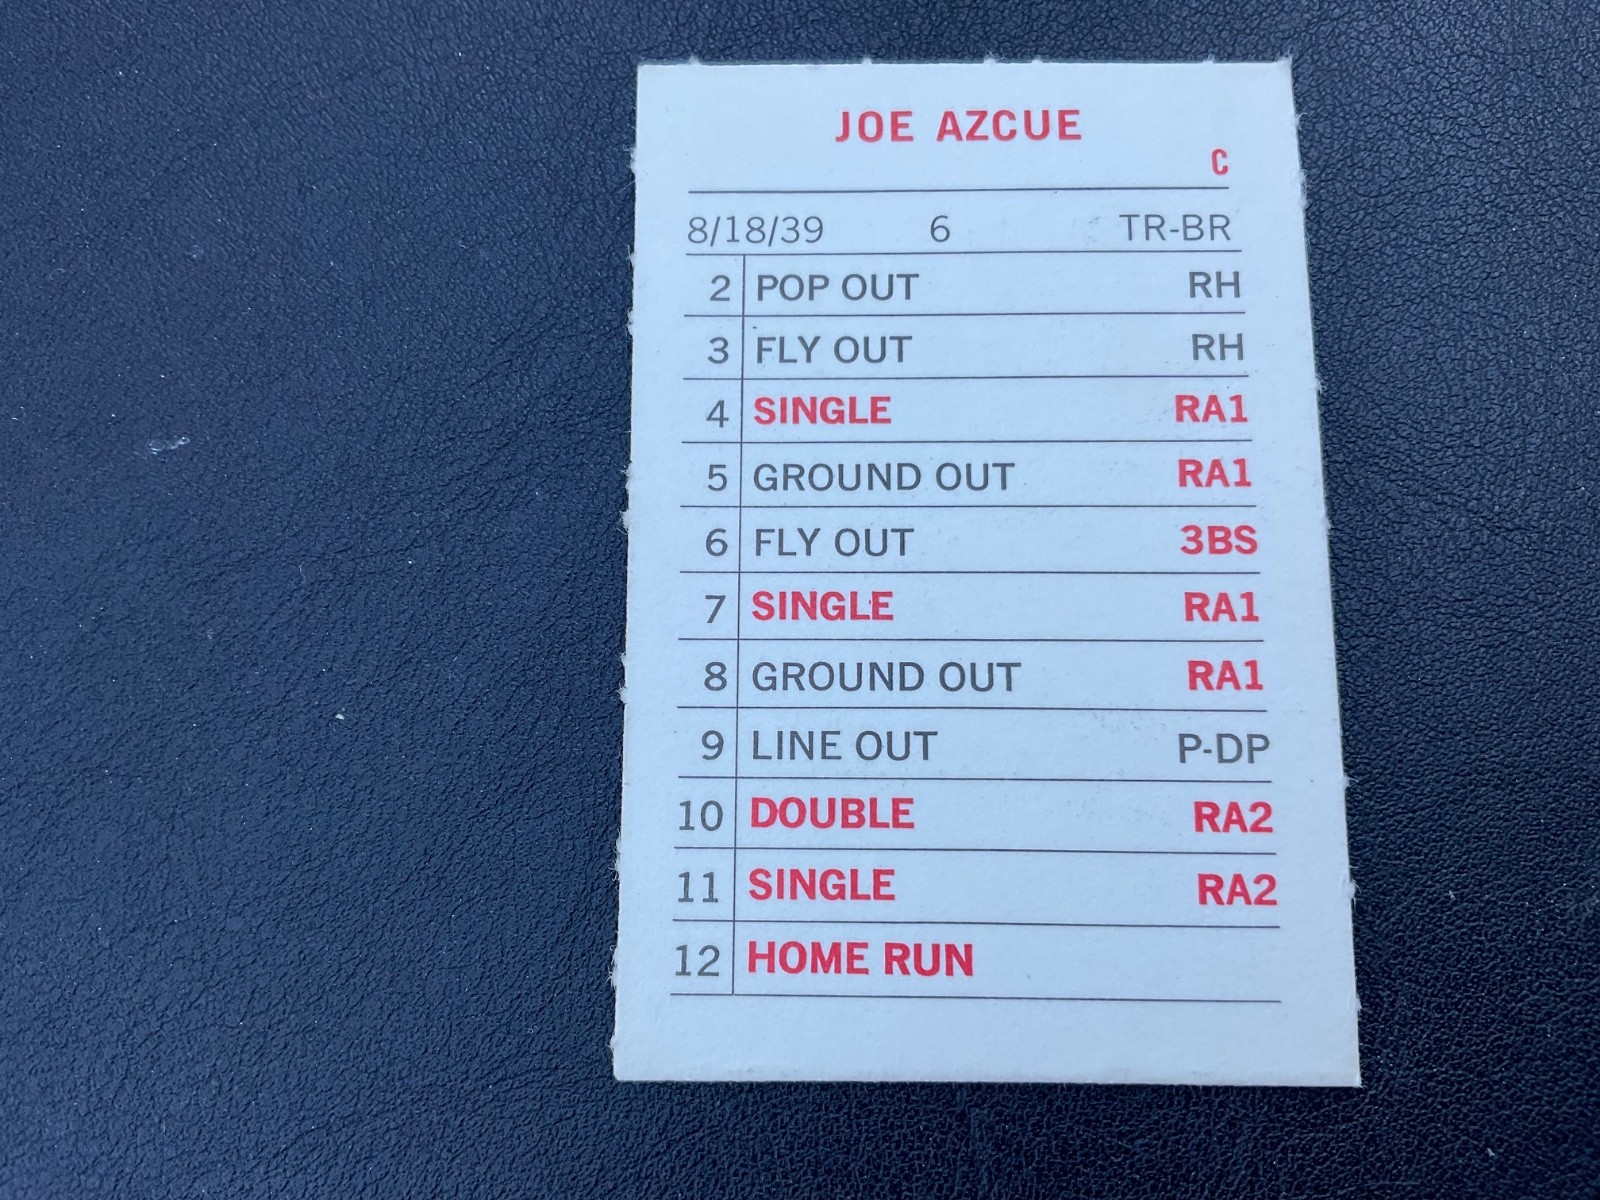 JOE AZCUE
C
8/18/39 6 TR-BR
2 POP OUT RH
3 FLY OUT RH
4 SINGLE RA1
5 GROUND OUT RA1
6 FLY OUT 3BS
7 SINGLE RA1
8 GROUND OUT RA1
9 LINE OUT P-DP
10 DOUBLE RA2
11 SINGLE RA2
12 HOME RUN